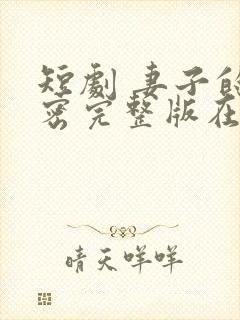 短劇 妻子的
密完整版在
晴天咩咩